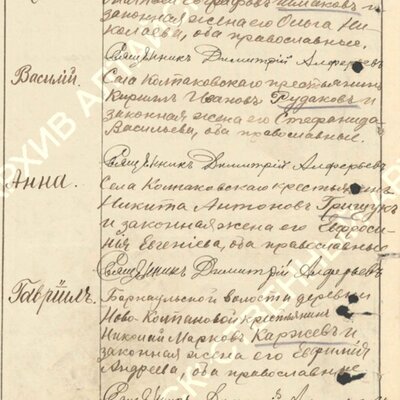 законная жена его Ольга Ни-
колаева, оба православные.
Священникъ Димитрій Алферьевъ
Василій.
Села Колтаковскаго крестьянинъ
Кириллъ Ивановъ Рудаковъ и
законная жена его Стефанида
Васильева, оба православные.
Священникъ Димитрій Алферьевъ
Анна.
Села Колтаковскаго крестьянинъ
Никита Антоновъ Грищукъ
и законная жена его Евфроси-
нія Евгеніева, оба православные
Священникъ Димитрій Алферьевъ
Гавріилъ.
Барнаульской волости деревни
Ново-Колтаковой крестьянинъ
Николай Марковъ Каржевъ и
законная жена его Евфимія
Андреева, оба православные.
Священникъ Димитрій Алферьевъ